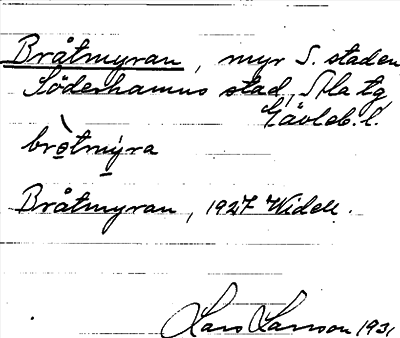 Bråtmyran, myr S. staden
Söderhamns stad, Ala tg
Gävleb. l.
bròtmýra
Bråtmyran, 1927 Widell.
Lars Larsson 1931